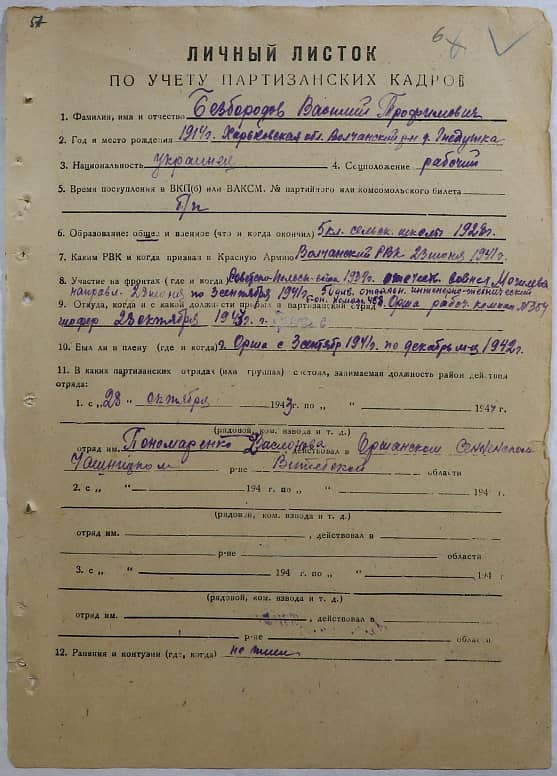 57
6
ЛИЧНЫЙ ЛИСТОК
ПО УЧЕТУ ПАРТИЗАНСКИХ КАДРОВ
1. Фамилия, имя и отчество Безбородов Василий Трофимович
2. Год и место рождения 1914г. Харьковская обл. Волчанский р-н д.
3. Национальность украинец 4. Соцположение рабочий
5. Время поступления в ВКП(б) или ВЛКСМ. № партийного или комсомольского билета
б/п
6. Образование: общее и военное (что и когда окончил) 5 кл. сельск. школы 1928г.
7. Каким РВК и когда призван в Красную Армию Волчанский РВК 23 июня 1941г.
8. Участие на фронтах (где и когда) 1939г. отечеств. война Могилевск
направл. 23 июня по 3 сентября 1941г.
9. Откуда, когда и с какой должности прибыл в партизанский отряд г. Орша рабоч.
шофер 28 октября 1943г.
10. Был ли в плену (где и когда) г. Орша с 3 сентябр 1941г. по декабрь м-ц 1942г.
11. В каких партизанских отрядах (или группах) состоял, занимаемая должность район действия
отряда:
1. с „28 “ октября 1943г. по „ “ 194 г.
(рядовой, ком. взвода и т. д.)
отряд им. Пономаренко, действовал в Оршанском
Чашницком р-не Витебской области
2. с „ “ 194 г. по „ “ 194 г.
(рядовой, ком. взвода и т. д.)
отряд им. , действовал в
р-не области
3. с „ “ 194 г. по „ “ 194 г
(рядовой, ком. взвода и т. д.)
отряд им. , действовал в
р-не области
12. Ранения и контузии (где, когда) не имел